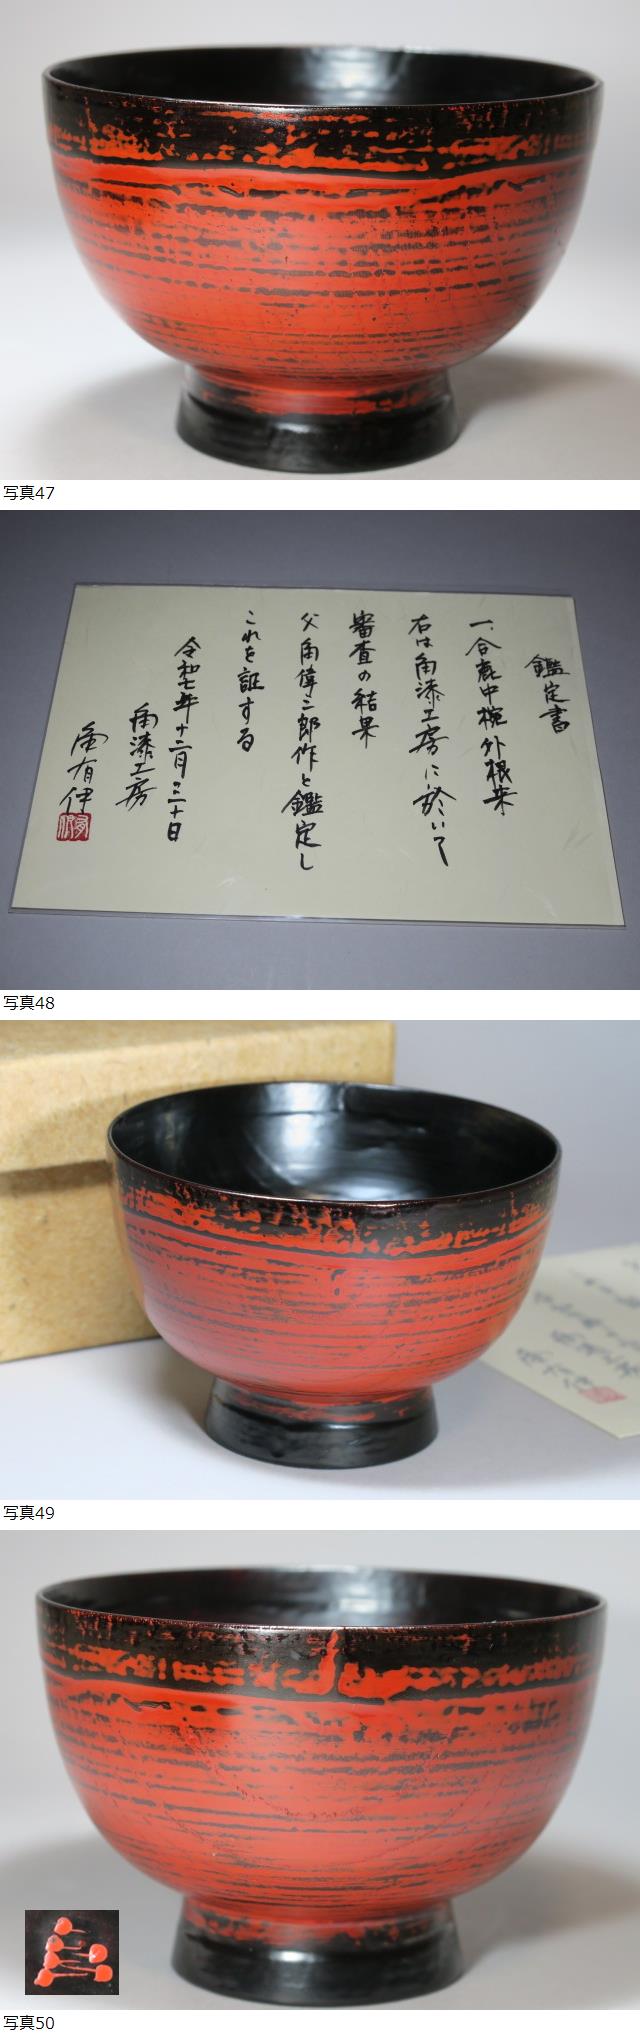 写真47
鑑定書
一、合鹿中椀外根来
右は角漆工房に於いて
審査の結果
父角偉三郎作と鑑定し
これを証する
令和七年十二月三十日
角漆工房
角有伊
写真48
写真49
写真50